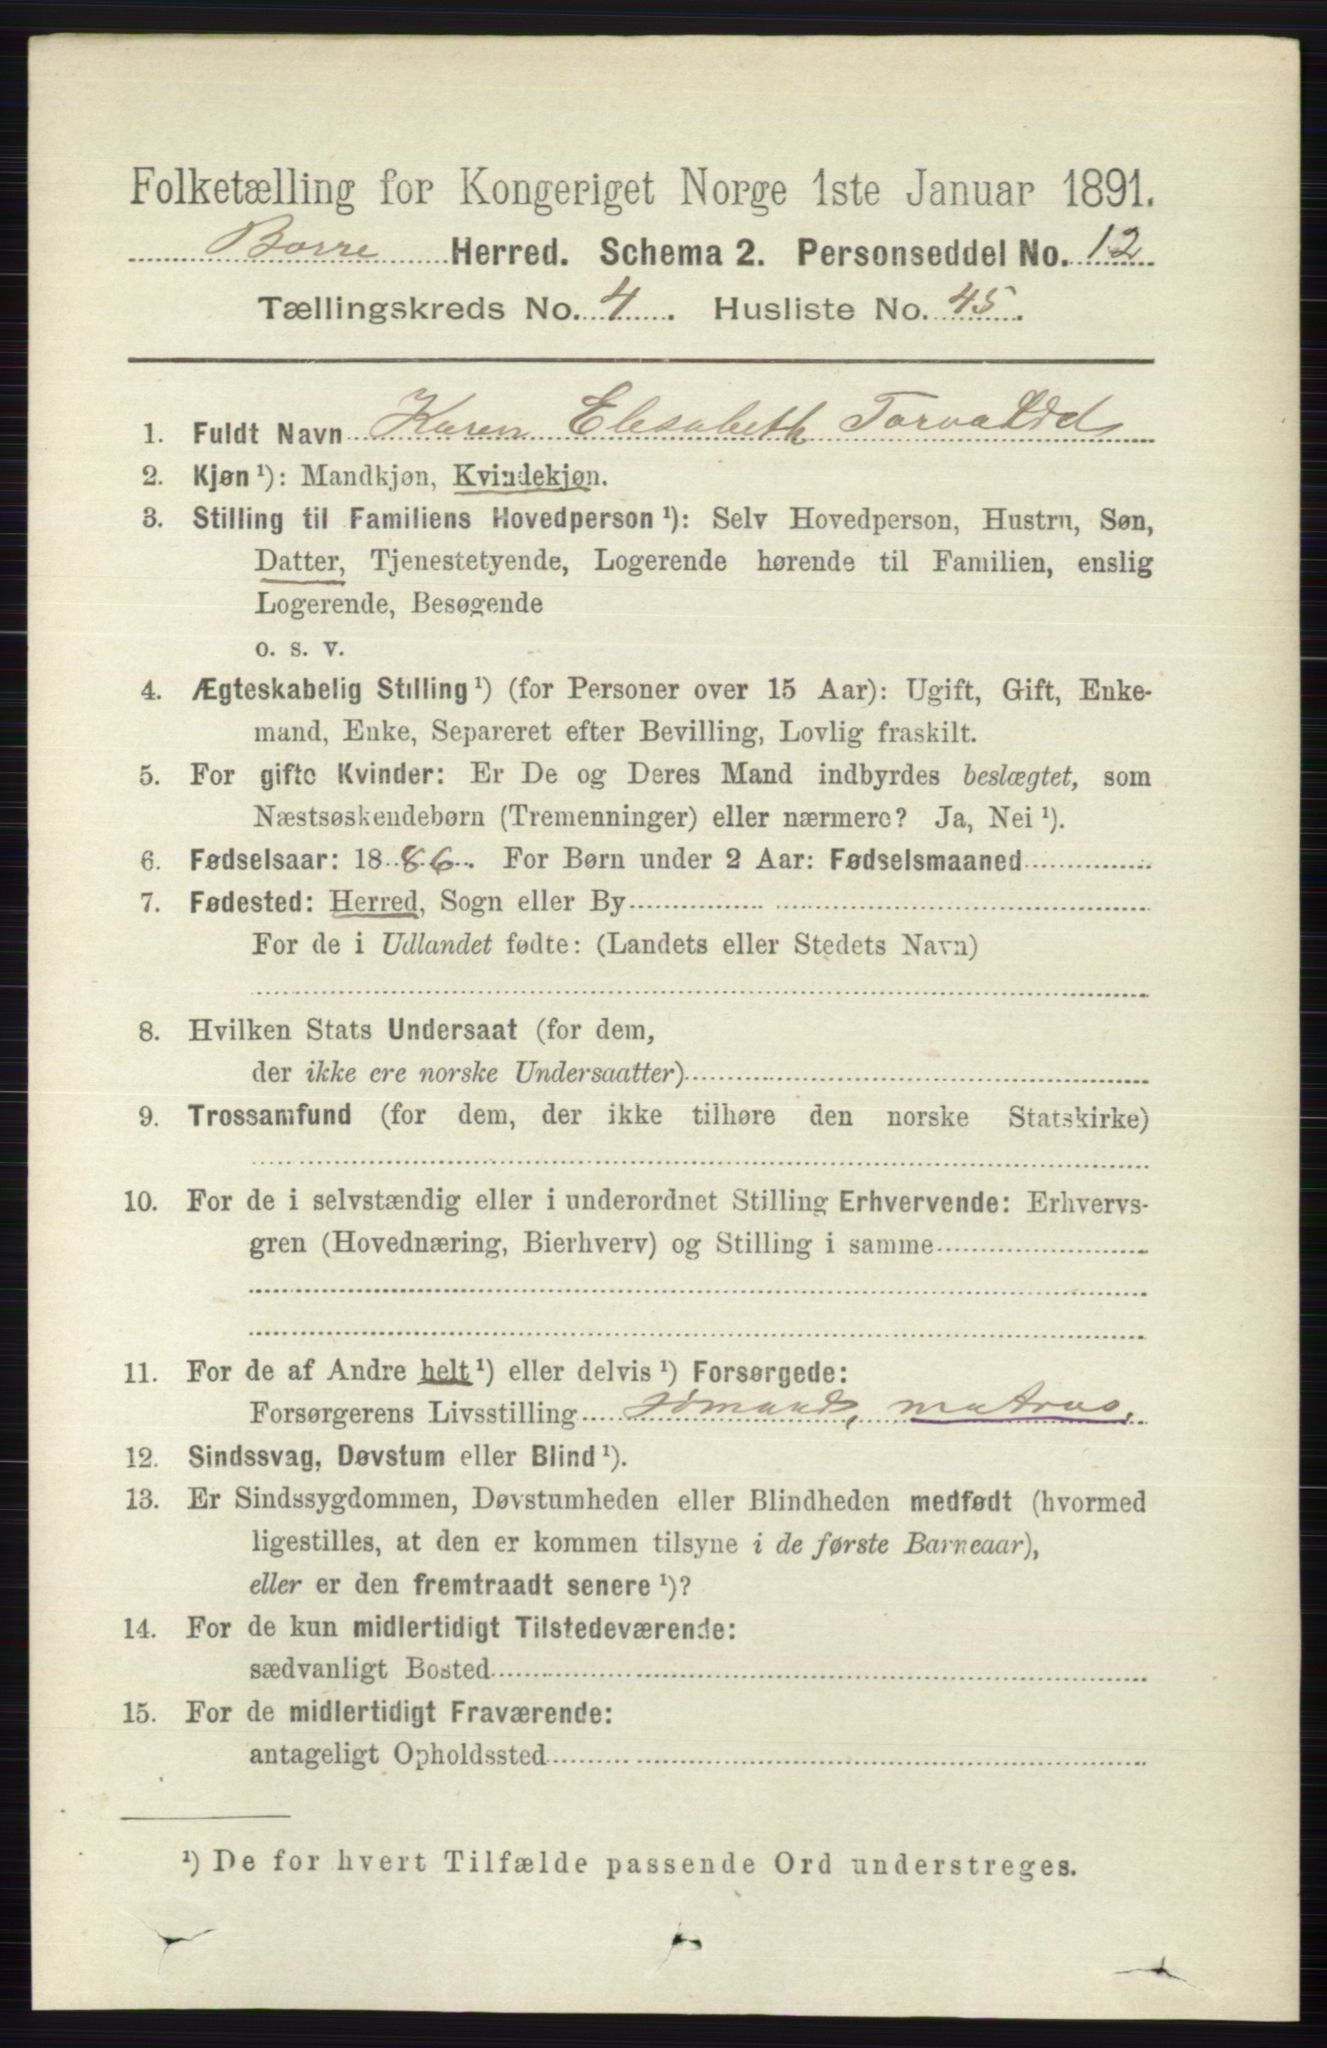 Folketælling for Kongeriget Norge 1ste Januar 1891.
Borre Herred. Schema 2. Personseddel No. 12
Tællingskreds No. 4. Husliste No. 45.
1. Fuldt Navn Karen Elisabeth
2. Kjøn¹): Mandkjøn, Kvindekjøn.
3. Stilling til Familiens Hovedperson¹): Selv Hovedperson, Hustru, Søn,
Datter, Tjenestetyende, Logerende hørende til Familien, enslig
Logerende, Besøgende
o. s. v.
4. Ægteskabelig Stilling¹) (for Personer over 15 Aar): Ugift, Gift, Enke-
mand, Enke, Separeret efter Bevilling, Lovlig fraskilt.
5. For gifte Kvinder: Er De og Deres Mand indbyrdes beslægtet, som
Næstsøskendebørn (Tremenninger) eller nærmere? Ja, Nei¹).
6. Fødselsaar: 1886. For Børn under 2 Aar: Fødselsmaaned
7. Fødested: Herred, Sogn eller By
For de i Udlandet fødte: (Landets eller Stedets Navn)
8. Hvilken Stats Undersaat (for dem,
der ikke ere norske Undersaatter)
9. Trossamfund (for dem, der ikke tilhøre den norske Statskirke)
10. For de i selvstændig eller i underordnet Stilling Erhvervende: Erhvervs-
gren (Hovednæring, Bierhverv) og Stilling i samme
11. For de af Andre helt¹) eller delvis¹) Forsørgede:
Forsørgerens Livsstilling sømand, matros,
12. Sindssvag, Døvstum eller Blind¹).
13. Er Sindssygdommen, Døvstumheden eller Blindheden medfødt (hvormed
ligestilles, at den er kommen tilsyne i de første Barneaar),
eller er den fremtraadt senere¹)?
14. For de kun midlertidigt Tilstedeværende:
sædvanligt Bosted
15. For de midlertidigt Fraværende:
antageligt Opholdssted
¹) De for hvert Tilfælde passende Ord understreges.